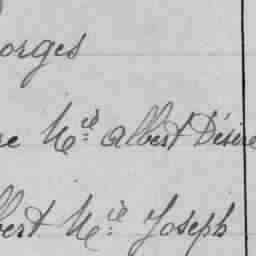 orges
re M.ie Albert Désiré
bert M.ie Joseph